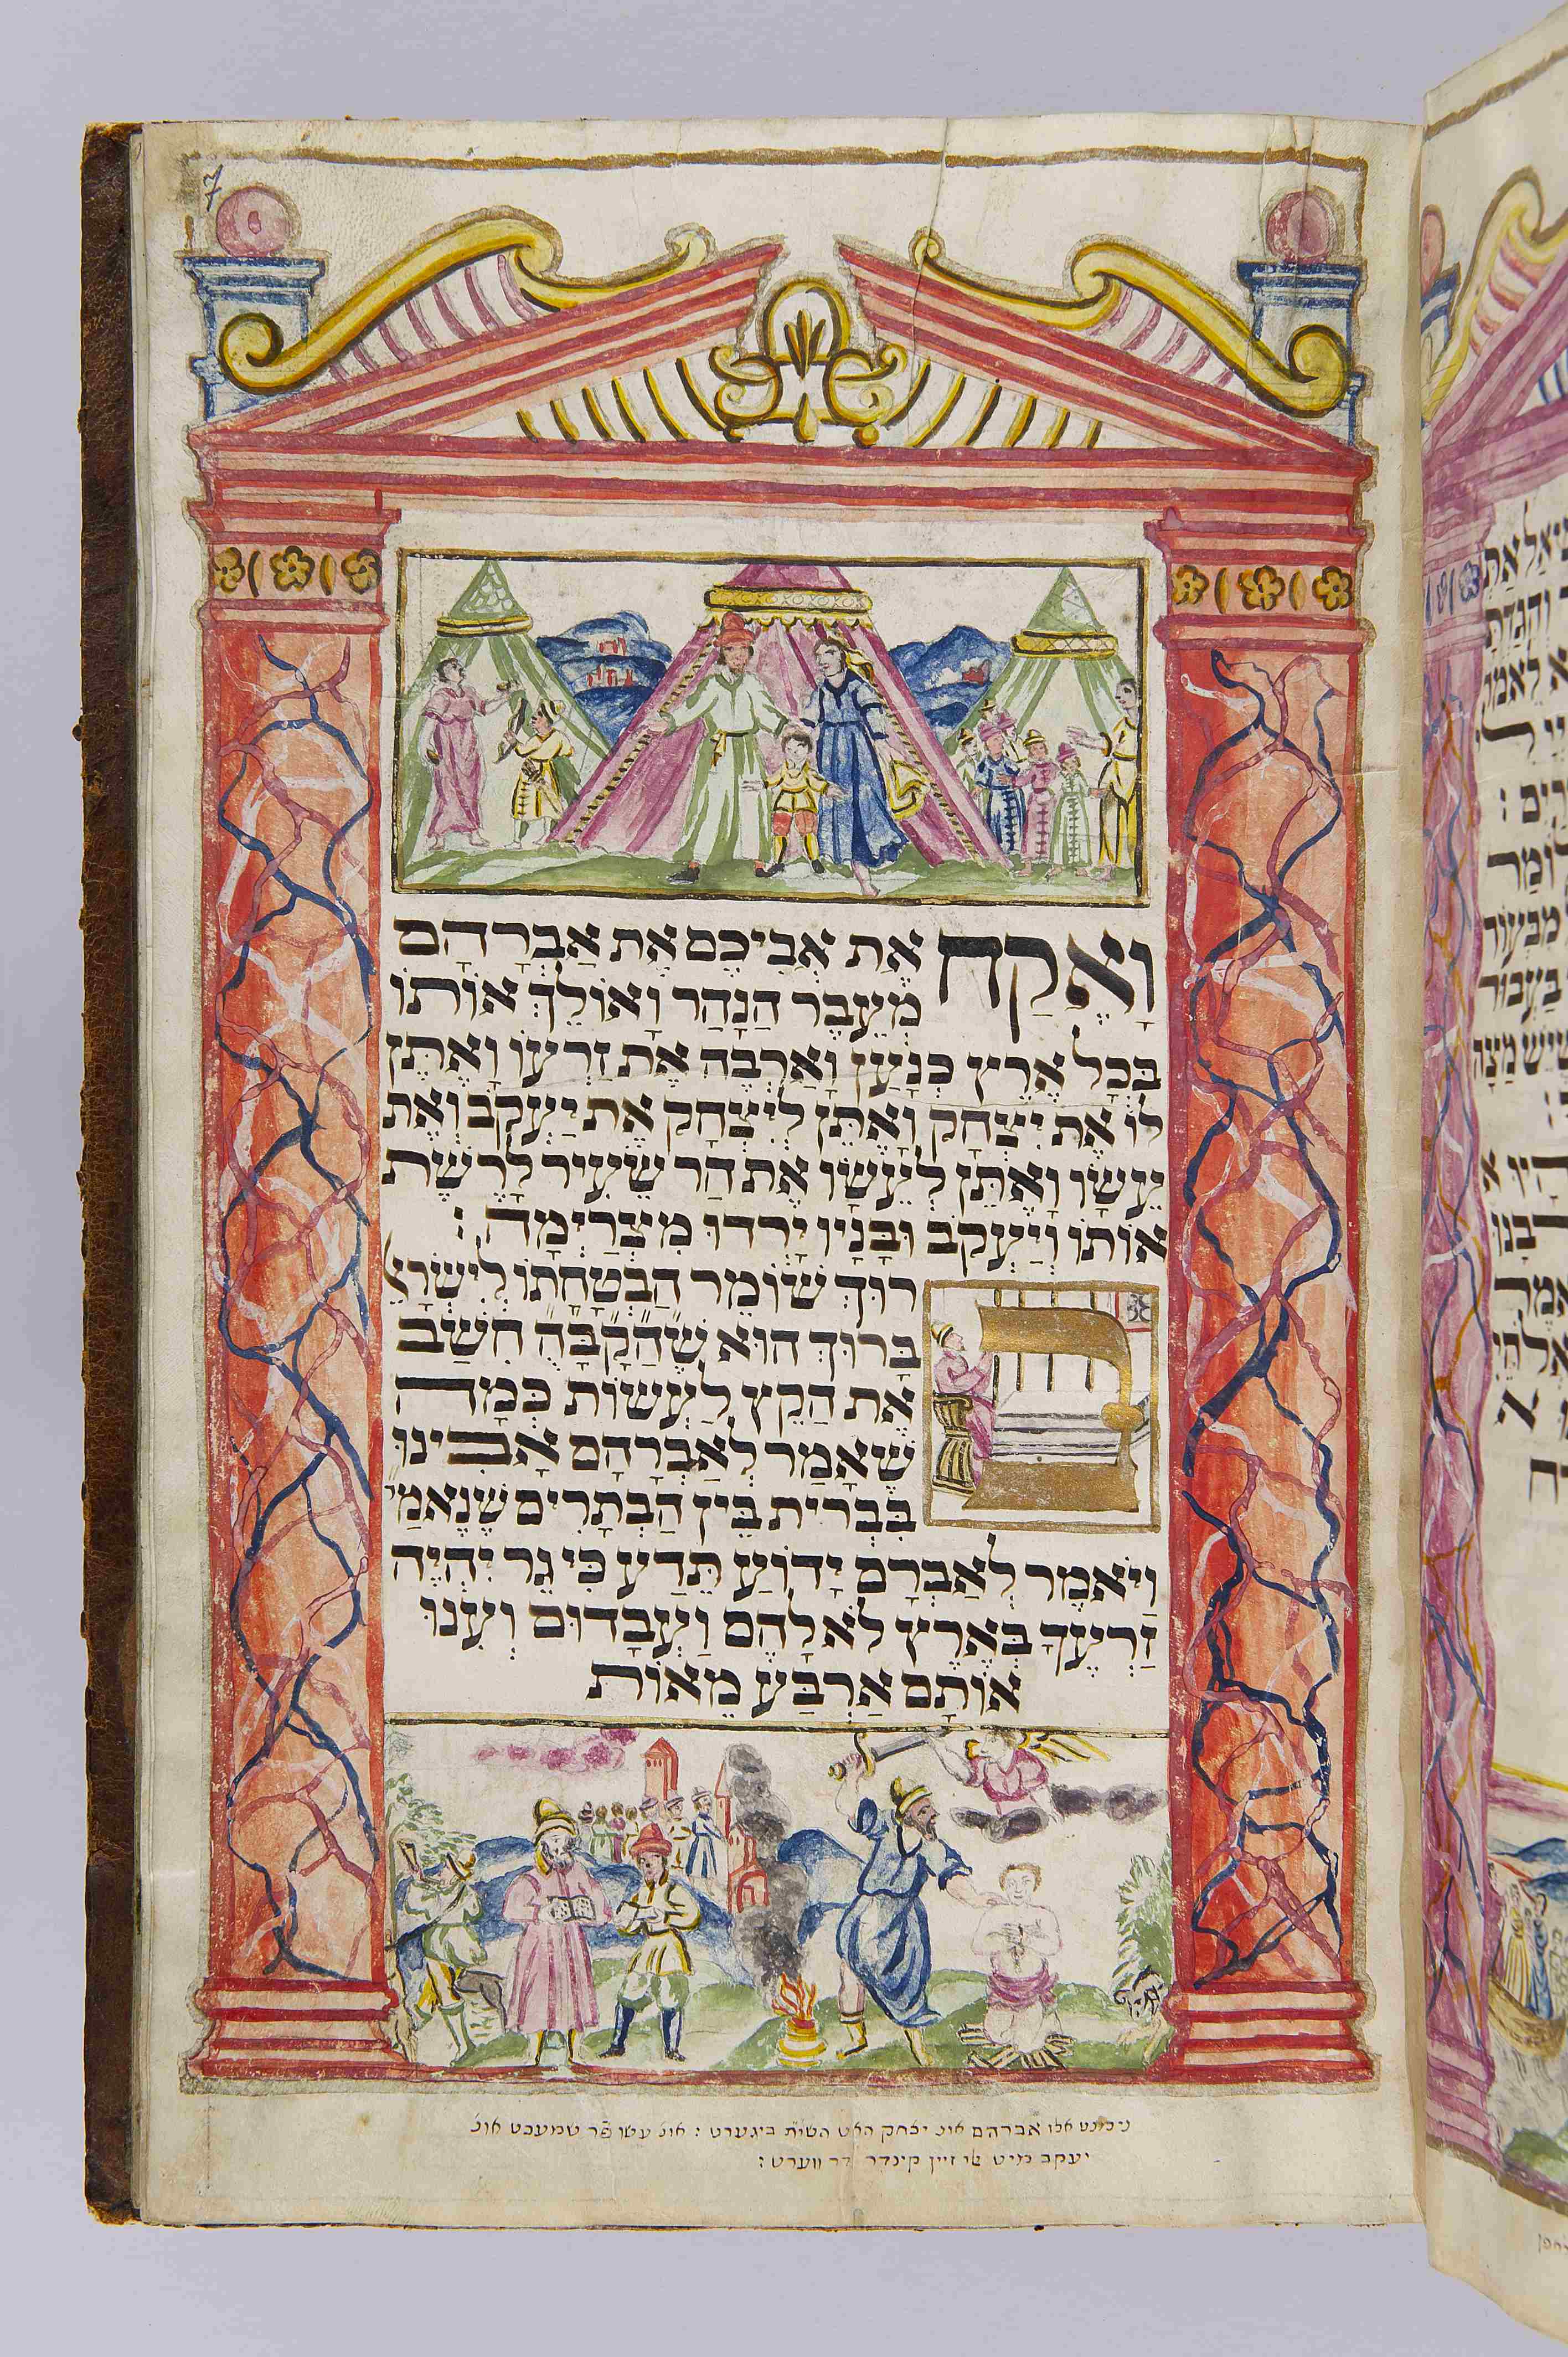 7
וָאֶקַח אֶת אֲבִיכֶם אֶת אַבְרָהָם
מֵעֵבֶר הַנָהָר וָאוֹלֵךְ אוֹתוֹ
בְּכָל אֶרֶץ כְּנָעַן וָאַרְבֶּה אֶת זַרְעוֹ וָאֶתֵּן
לוֹ אֶת יִצְחָק וָאֶתֵּן לְיִצְחָק אֶת יַעֲקֹב וְאֶת
עֵשָׂו וָאֶתֵּן לְעֵשָׂו אֶת הַר שֵׂעִיר לָרֶשֶׁת
אוֹתוֹ וְיַעֲקֹב וּבָנָיו יָרְדוּ מִצְרַיְמָה :
בָּרוּךְ שׁוֹמֵר הַבְטָחָתוֹ לְיִשְׂרָאֵל
בָּרוּךְ הוּא שֶׁהַקָבָּה חִשֵׁב
אֶת הַקֵץ לַעֲשׂוֹת כְּמָה
שֶׁאָמַר לְאַבְרָהָם אָבִינוּ
בִּבְרִית בֵּין הַבְּתָרִים שֶׁנֶאֱמַ'
וַיֹאמֶר לְאַבְרָם יָדוֹעַ תֵּדַע כִּי גֵר יִהְיֶה
זַרְעֲךָ בְּאֶרֶץ לֹא לָהֶם וַעֲבָדוּם וְעִנוּ
אוֹתָם אַרְבַּע מֵאוֹת
אברהם אונ יצחק האט השי"ת ביגערט : אונ עשו
יעקב מיט זיין קינדר דר ווערט :